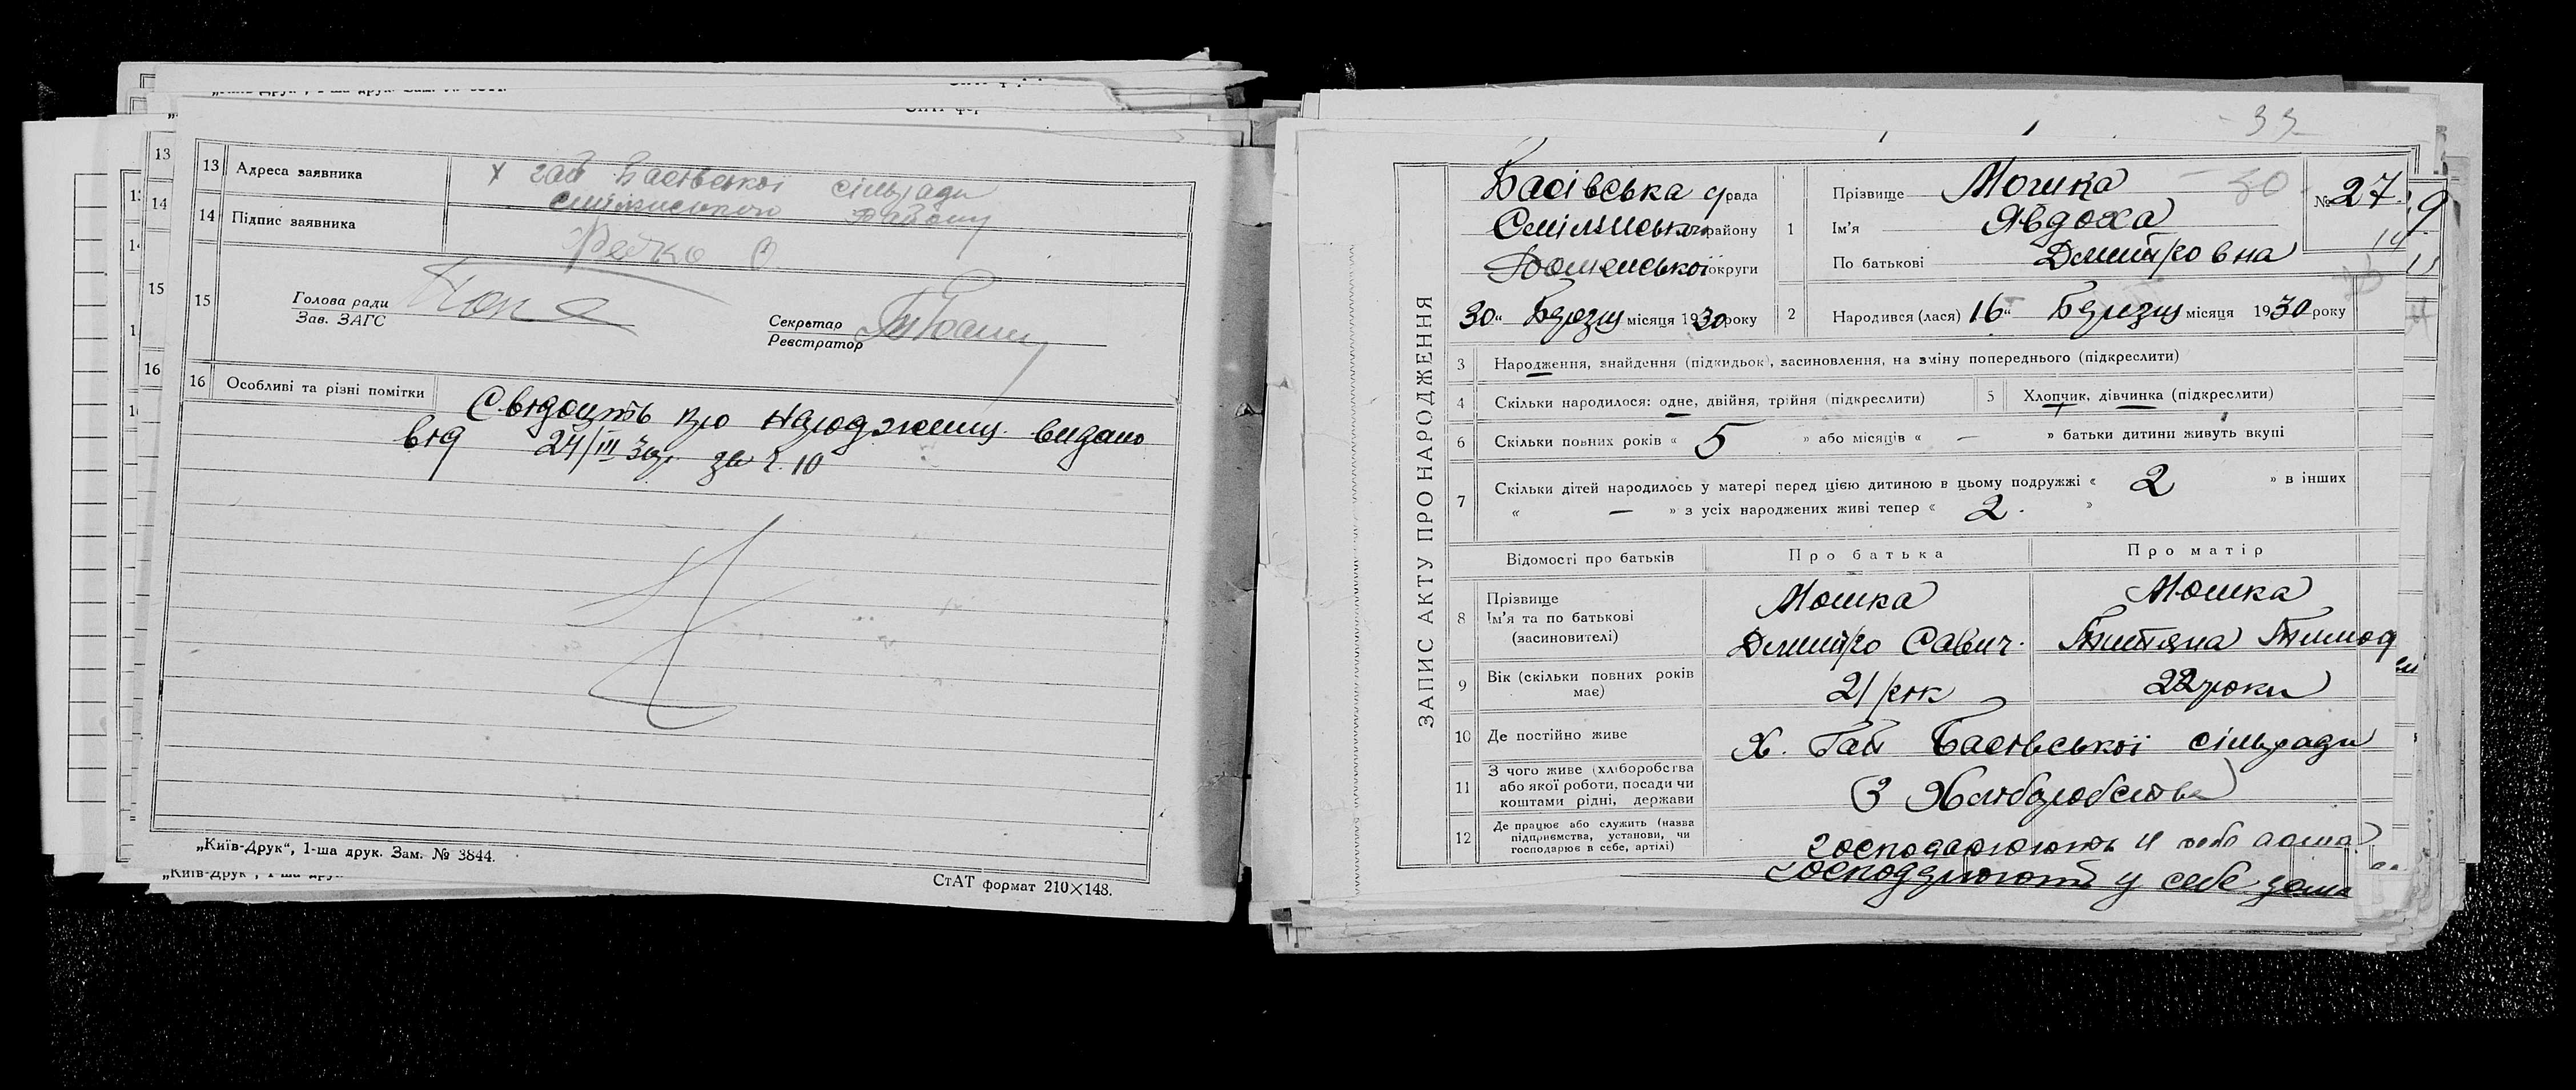 13 Адреса заявника х гай Басівської сільради
Смілянського району
14 Підпис заявника Редко О.
15 Голова ради
Зав. ЗАГС
Секретар
Реєстратор
16 Особливі та різні помітки Свідоцть про народження видано
від 24/III 30р. за ч. 10
„Київ-Друк“, 1-ша друк. Зам. № 3844.
СтАТ формат 210×148.
33
ЗАПИС АКТУ ПРО НАРОДЖЕННЯ
Басівська с/рада
Смілянського району
округи
30 „ Березня місяця 1930 року
1 Прізвище Мошка
Ім'я Явдоха
По батькові Дмитровна
№ 27
2 Народився (лася) 16 „ Березня місяця 1930 року
3 Народження, знайдення (підкидьок), засиновлення, на зміну попереднього (підкреслити)
4 Скільки народилося: одне, двійня, трійня (підкреслити) 5 Хлопчик, дівчинка (підкреслити)
6 Скільки повних років « 5 » або місяців « — » батьки дитини живуть вкупі
7 Скільки дітей народилось у матері перед цією дитиною в цьому подружжі « 2 » в інших
« — » з усіх народжених живі тепер « 2. »
Відомості про батьків Про батька Про матір
8 Прізвище Мошка Мошка
Ім'я та по батькові
(засиновителі) Дмитро Савич. Титяна Тимоф
9 Вік (скільки повних років має) 21 рік 22 роки
10 Де постійно живе Х. Гай Басівської сільради
11 З чого живе (хліборобства
або якої роботи, посади чи
коштами рідні, держави З Хліборобства
12 Де працює або служить (назва
підприємства, установи, чи
господарює в себе, артілі) господарюють у себе дома
господарюють у себе дома